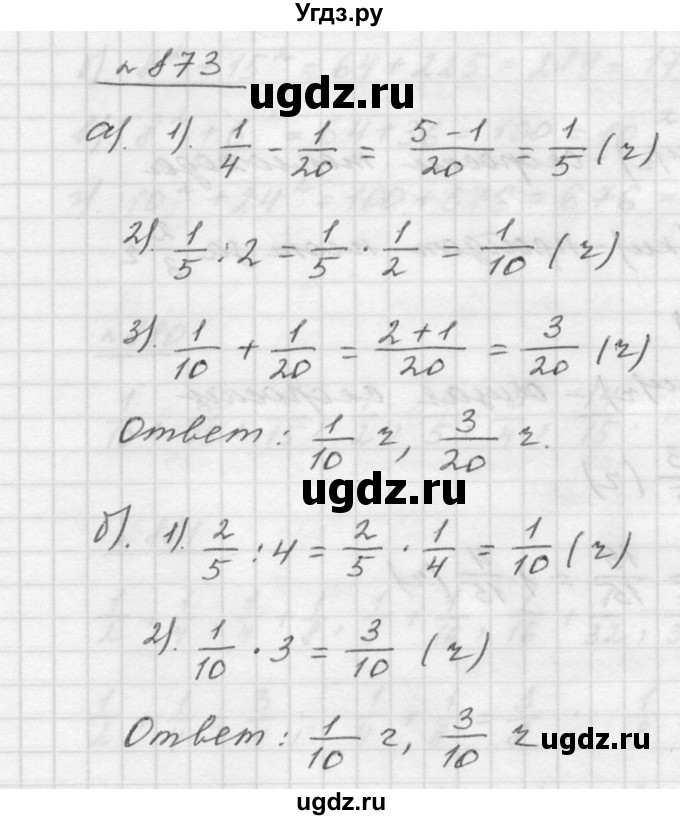 Угдз.ру
№ 873
ugdz.ru
а). 1). 1/4 - 1/20 = (5-1)/20 = 1/5 (ч)
2). 1/5 : 2 = 1/5 · 1/2 = 1/10 (ч)
3). 1/10 + 1/20 = (2+1)/20 = 3/20 (ч)
Ответ: 1/10 ч, 3/20 ч.
ugdz.ru
б). 1). 2/5 : 4 = 2/5 · 1/4 = 1/10 (ч)
2). 1/10 · 3 = 3/10 (ч)
Ответ: 1/10 ч, 3/10 ч
ugdz.ru
ugdz.ru